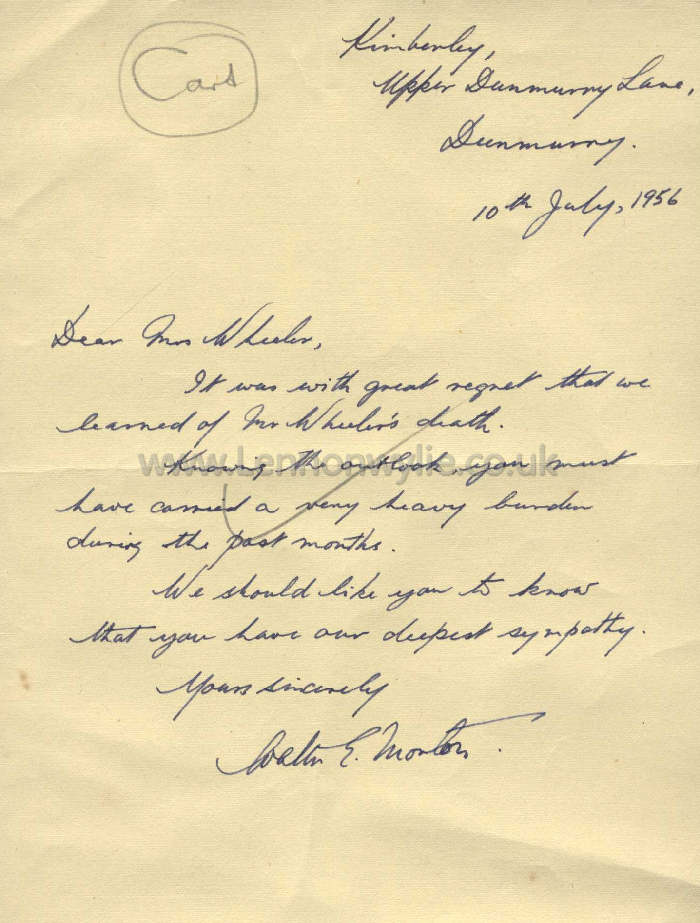 Card
Kimberley,
Upper Dunmurry Lane,
Dunmurry.
10th July, 1956
Dear Mrs Wheeler,
It was with great regret that we
learned of Mr Wheeler's death.
www.Lennonwylie.co.uk
Knowing the outlook, you must
have carried a very heavy burden
during the past months.
We should like you to know
that you have our deepest sympathy.
Yours sincerely
Walter E. Morton.